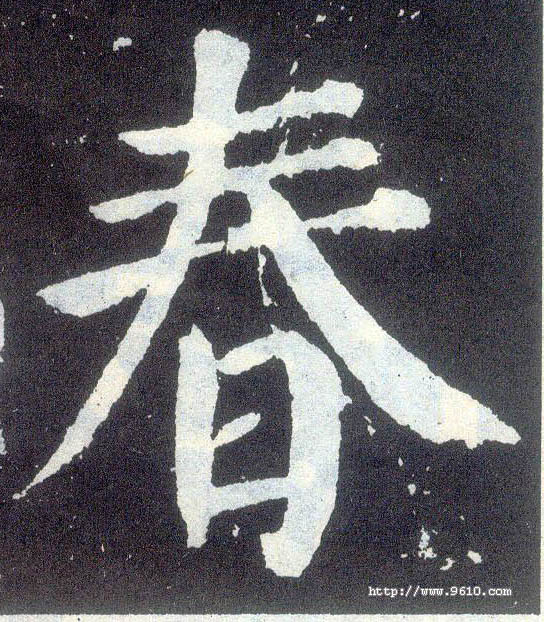 春
http://www.9610.com